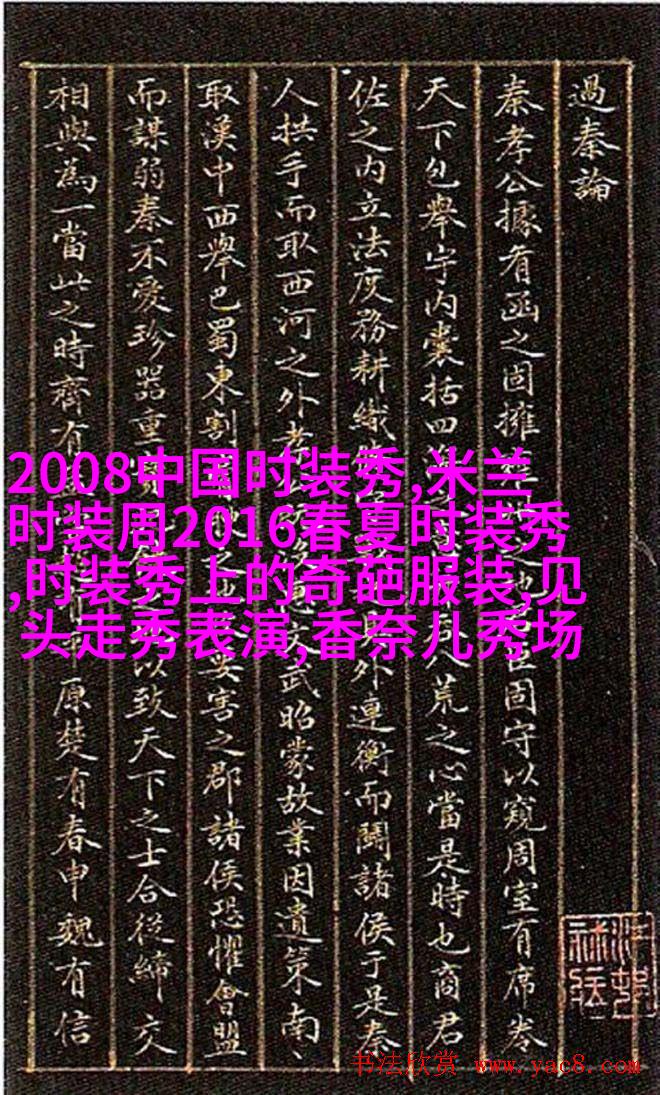 過秦論
秦孝公據有函之固擁地臣固守以窺周室有席卷
天下包舉宇内囊括四八荒之心當是時也商君
佐之内立法度務耕織外連衡而鬭諸侯于是秦
人拱手而取西河之外武昭蒙故業因遺策南、
取漢中西舉巴蜀東割要害之郡諸侯恐懼會盟
而謀弱秦不愛珍器重以致天下之士合從締交
相與為一當此之時齊有原楚有春申魏有信
2008中国时装秀,米兰
时装周2016春夏时装秀
,时装秀上的奇葩服装,见
头走秀表演,香奈儿秀场
书法欣赏 www.yac8.com